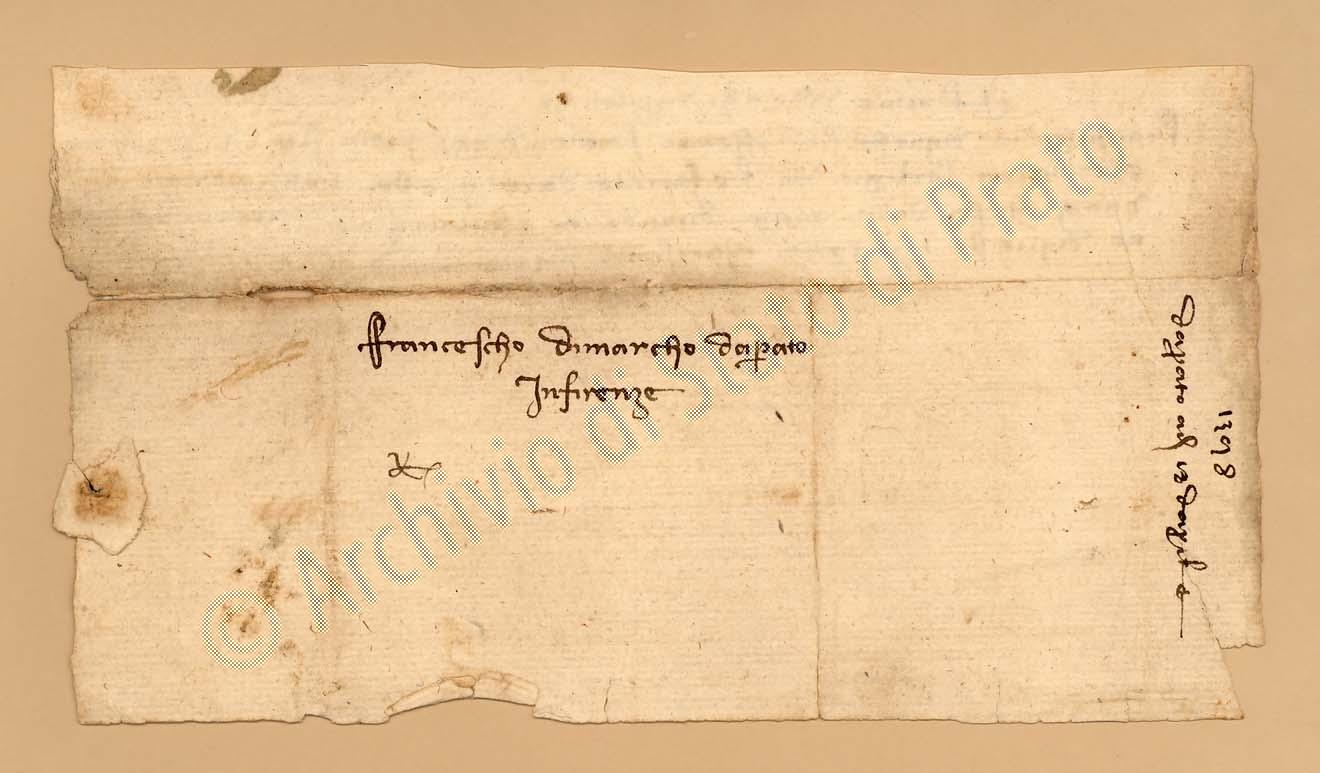 Francescho dimarcho daprato
Infirenze
1398
daprato adj 12 daprile
© Archivio di Stato di Prato